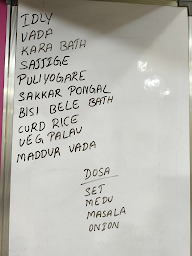 IDLY
VADA
KARA BATH
SAJJIGE
PULIYOGARE
SAKKAR PONGAL
BISI BELE BATH
CURD RICE
VEG PALAV
MADDUR VADA
DOSA
SET
MEDU
MASALA
ONION